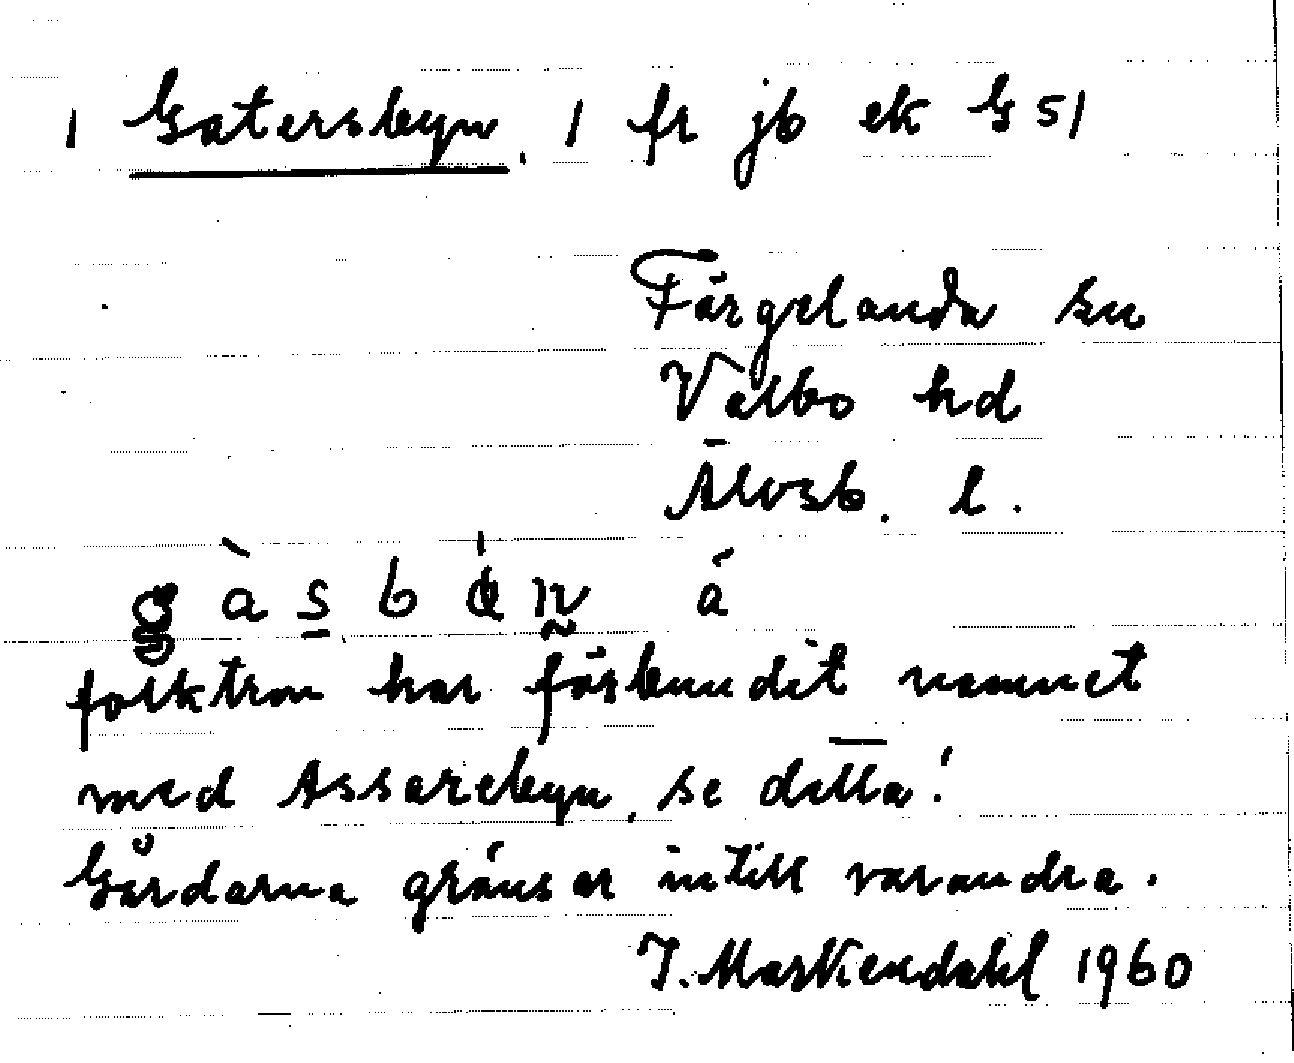 1 Gatersbyn, 1 fr jb ek G 51
Färgelanda sn
Valbo hd
Älvsb. l.
g à s b n á
folktron har förbundit namnet
med Assarebyn, se detta!
Gårdarna gränsar intill varandra.
J. Markendahl 1960